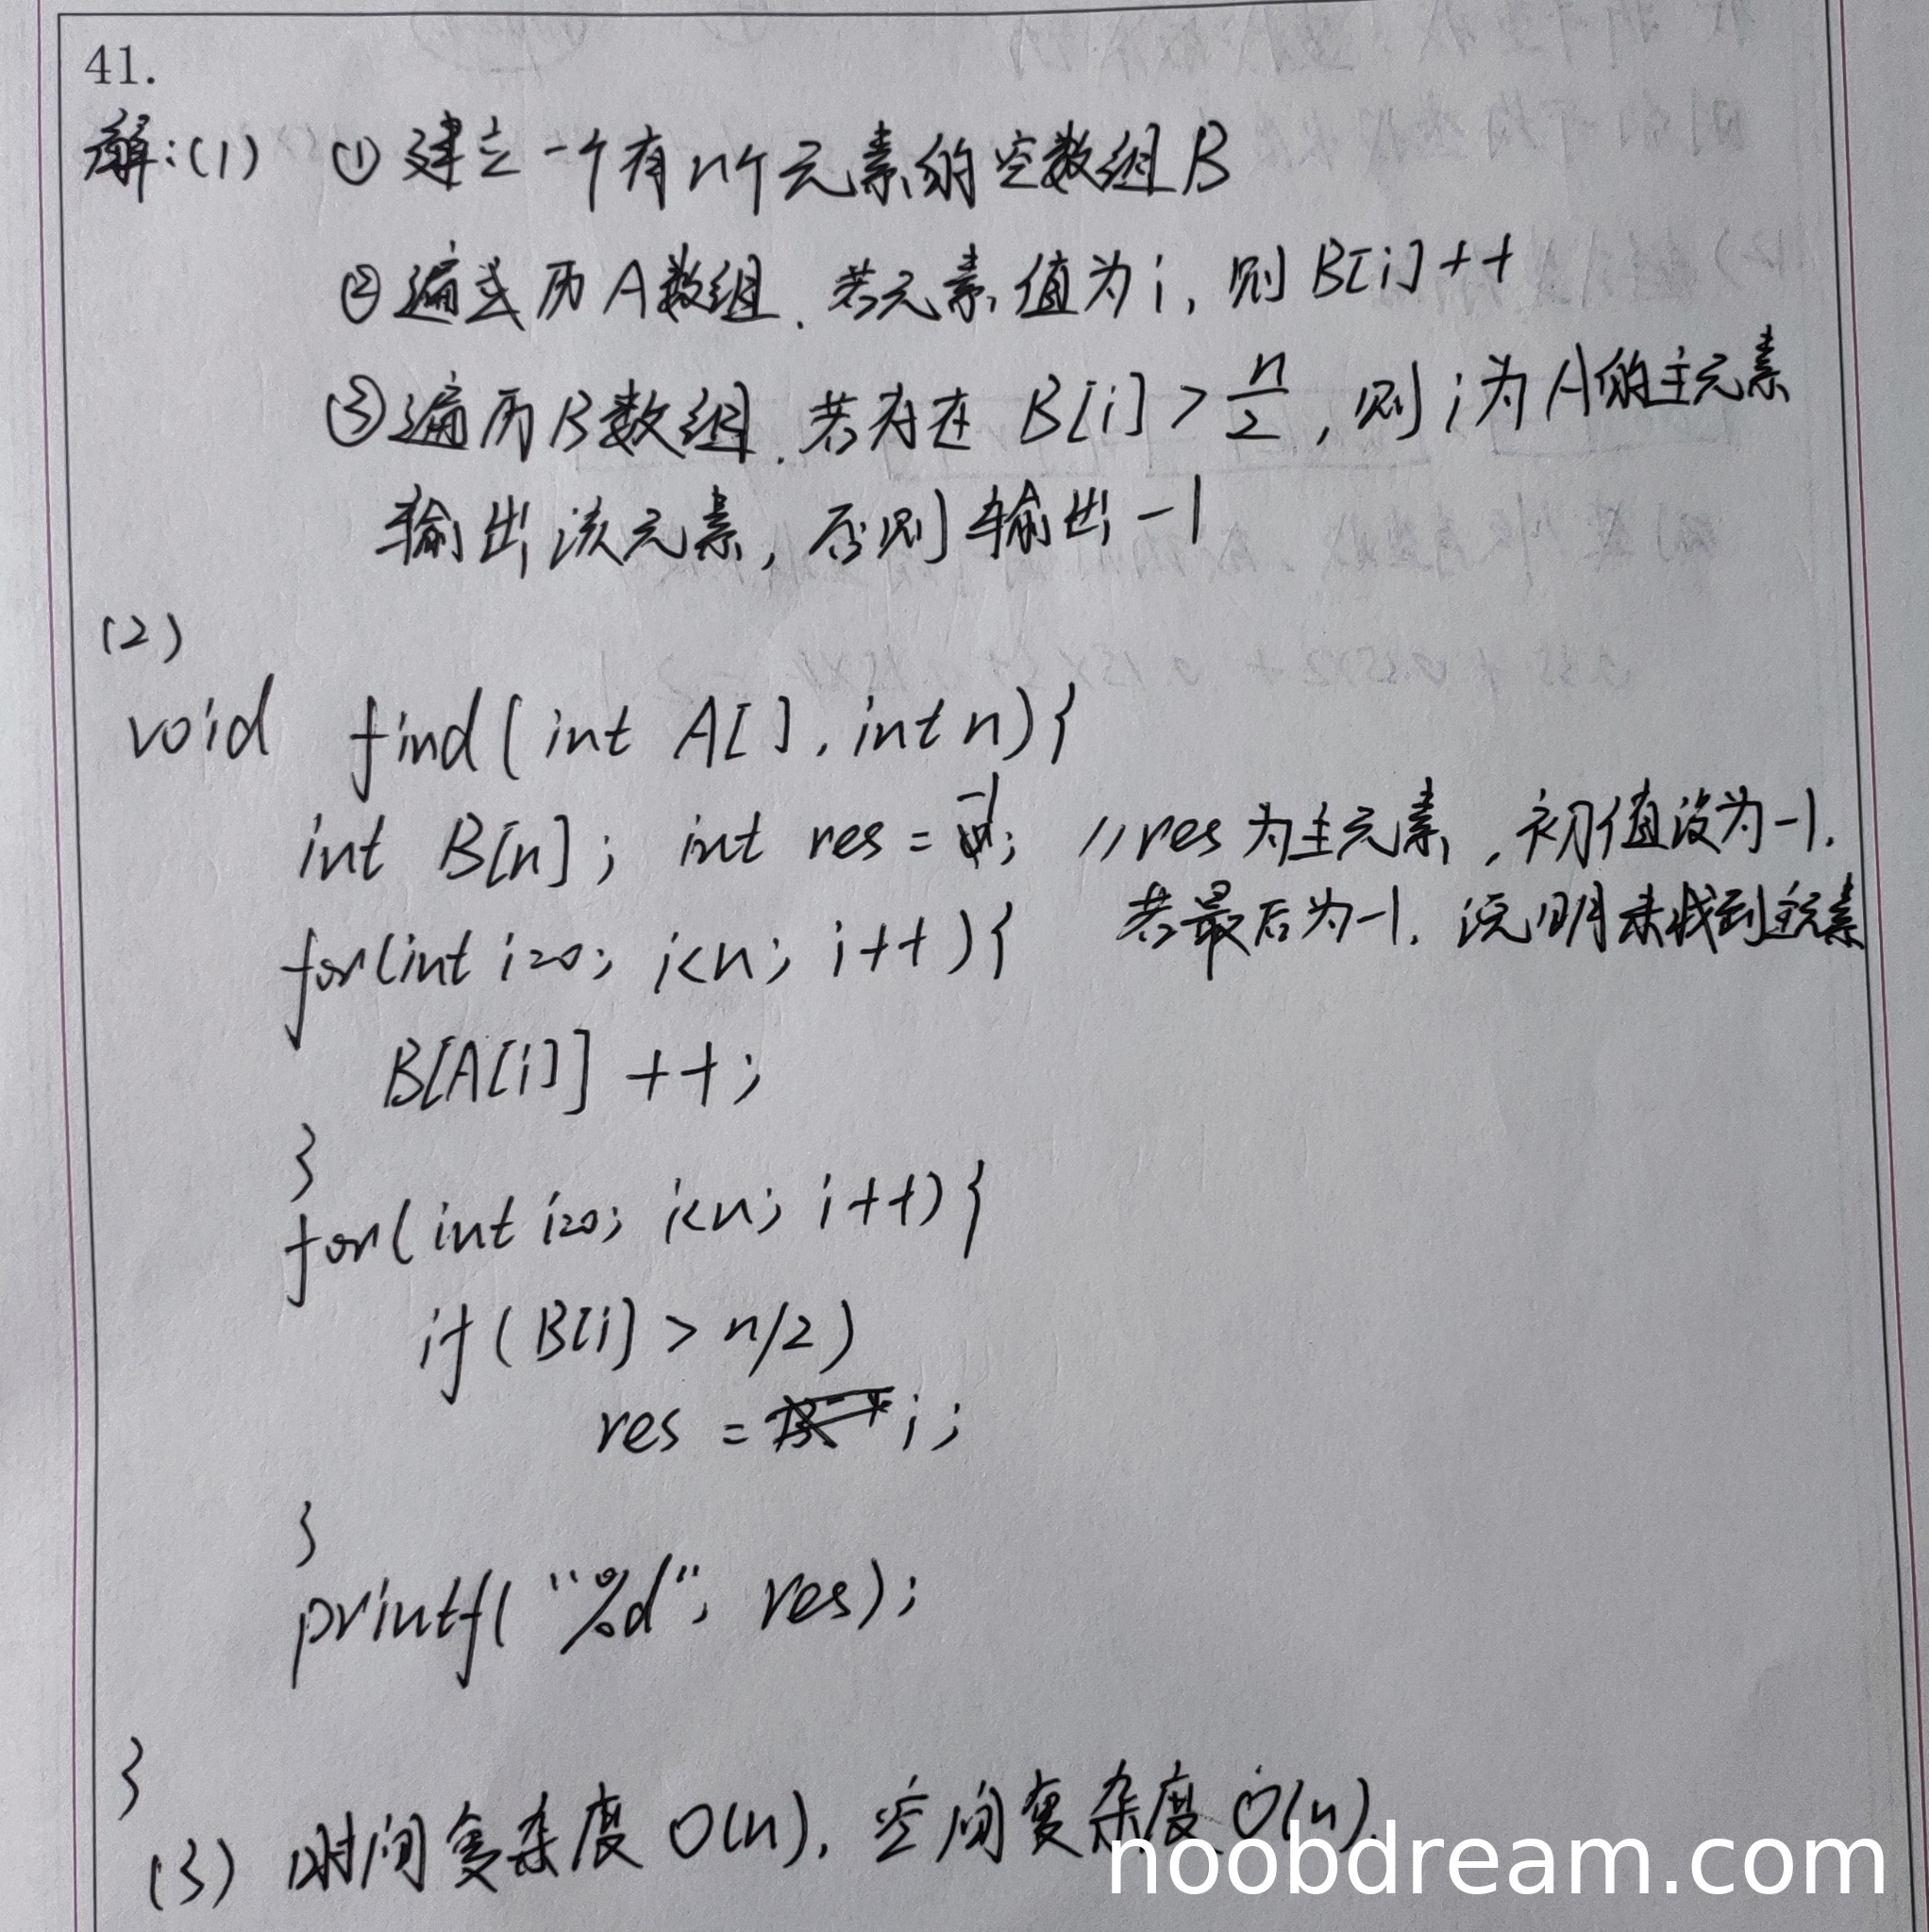 41.
解:(1) ① 建立一个有n个元素的空数组B
② 遍历A数组.若元素值为i,则B[i]++
③ 遍历B数组.若存在 B[i] > n/2 ,则i为A的主元素
输出该元素,否则输出-1
(2)
void find(int A[], int n){
int B[n]; int res = -1; //res为主元素,初值设为-1.
若最后为-1.说明未找到主元素
for(int i=0; i<n; i++){
B[A[i]]++;
}
for(int i=0; i<n; i++){
if(B[i] > n/2)
res = i;
}
printf("%d", res);
}
(3) 时间复杂度 O(n),空间复杂度 O(n).
noobdream.com